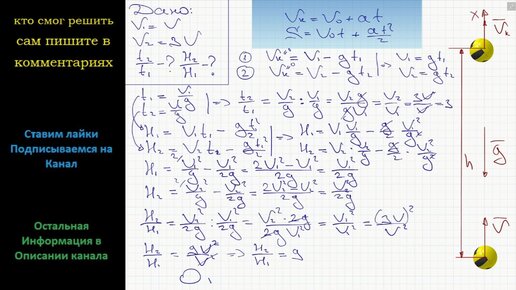 кто смог решить
сам пишите в
комментариях
Ставим лайки
Подписываемся на
Канал
Остальная
Информация в
Описании канала
Дано:
V₁ = V
V₂ = 3V
t₂/t₁ - ? H₂/H₁ - ?
Vₖ = V₀ + at
S = V₀t + at²/2
① Vₖ⁰ = V₁ - gt₁ | V₁ = gt₁
② Vₖ⁰ = V₂ - gt₂ | V₂ = gt₂
t₁ = V₁/g
t₂ = V₂/g | => t₂/t₁ = V₂/g : V₁/g = V₂g/gV₁ = V₂/V₁ = 3V/V = 3
H₁ = V₁t₁ - gt₁²/2
H₂ = V₂t₂ - gt₂²/2 | => H₁ = V₁ V₁/g - g/2 · V₁²/g²
H₂ = V₂ · V₂/g - g/2 · V₂²/g²
H₁ = V₁²/g - V₁²/2g = 2V₁² - V₁²/2g = V₁²/2g
H₂ = V₂²/g - V₂²/2g = 2V₂² - V₂²/2g = V₂²/2g
H₂/H₁ = V₂²/2g : V₁²/2g = V₂² · 2g/2g V₁² = V₂²/V₁² = (3V)²/V²
H₂/H₁ = 9V²/V² => H₂/H₁ = 9
X
Vₖ
g
h
V